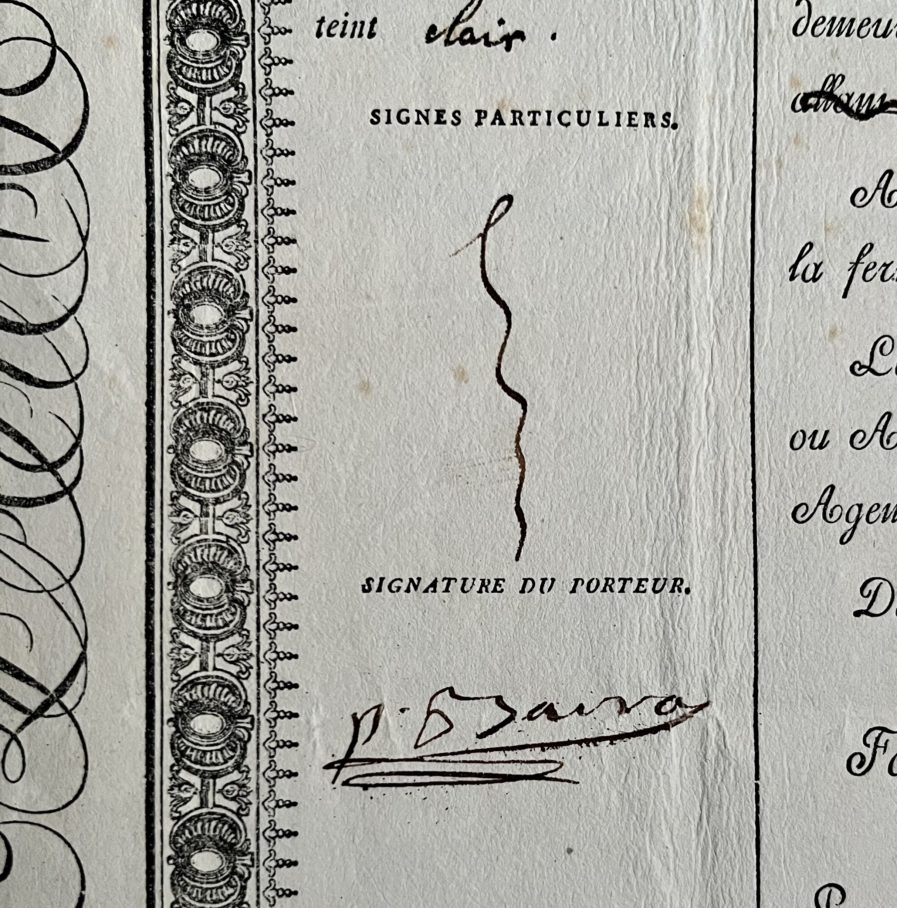 teint clair.
SIGNES PARTICULIERS.
SIGNATURE DU PORTEUR.
p.
demeur
allant
A
la fer
L
ou A
Agen
D
F
P